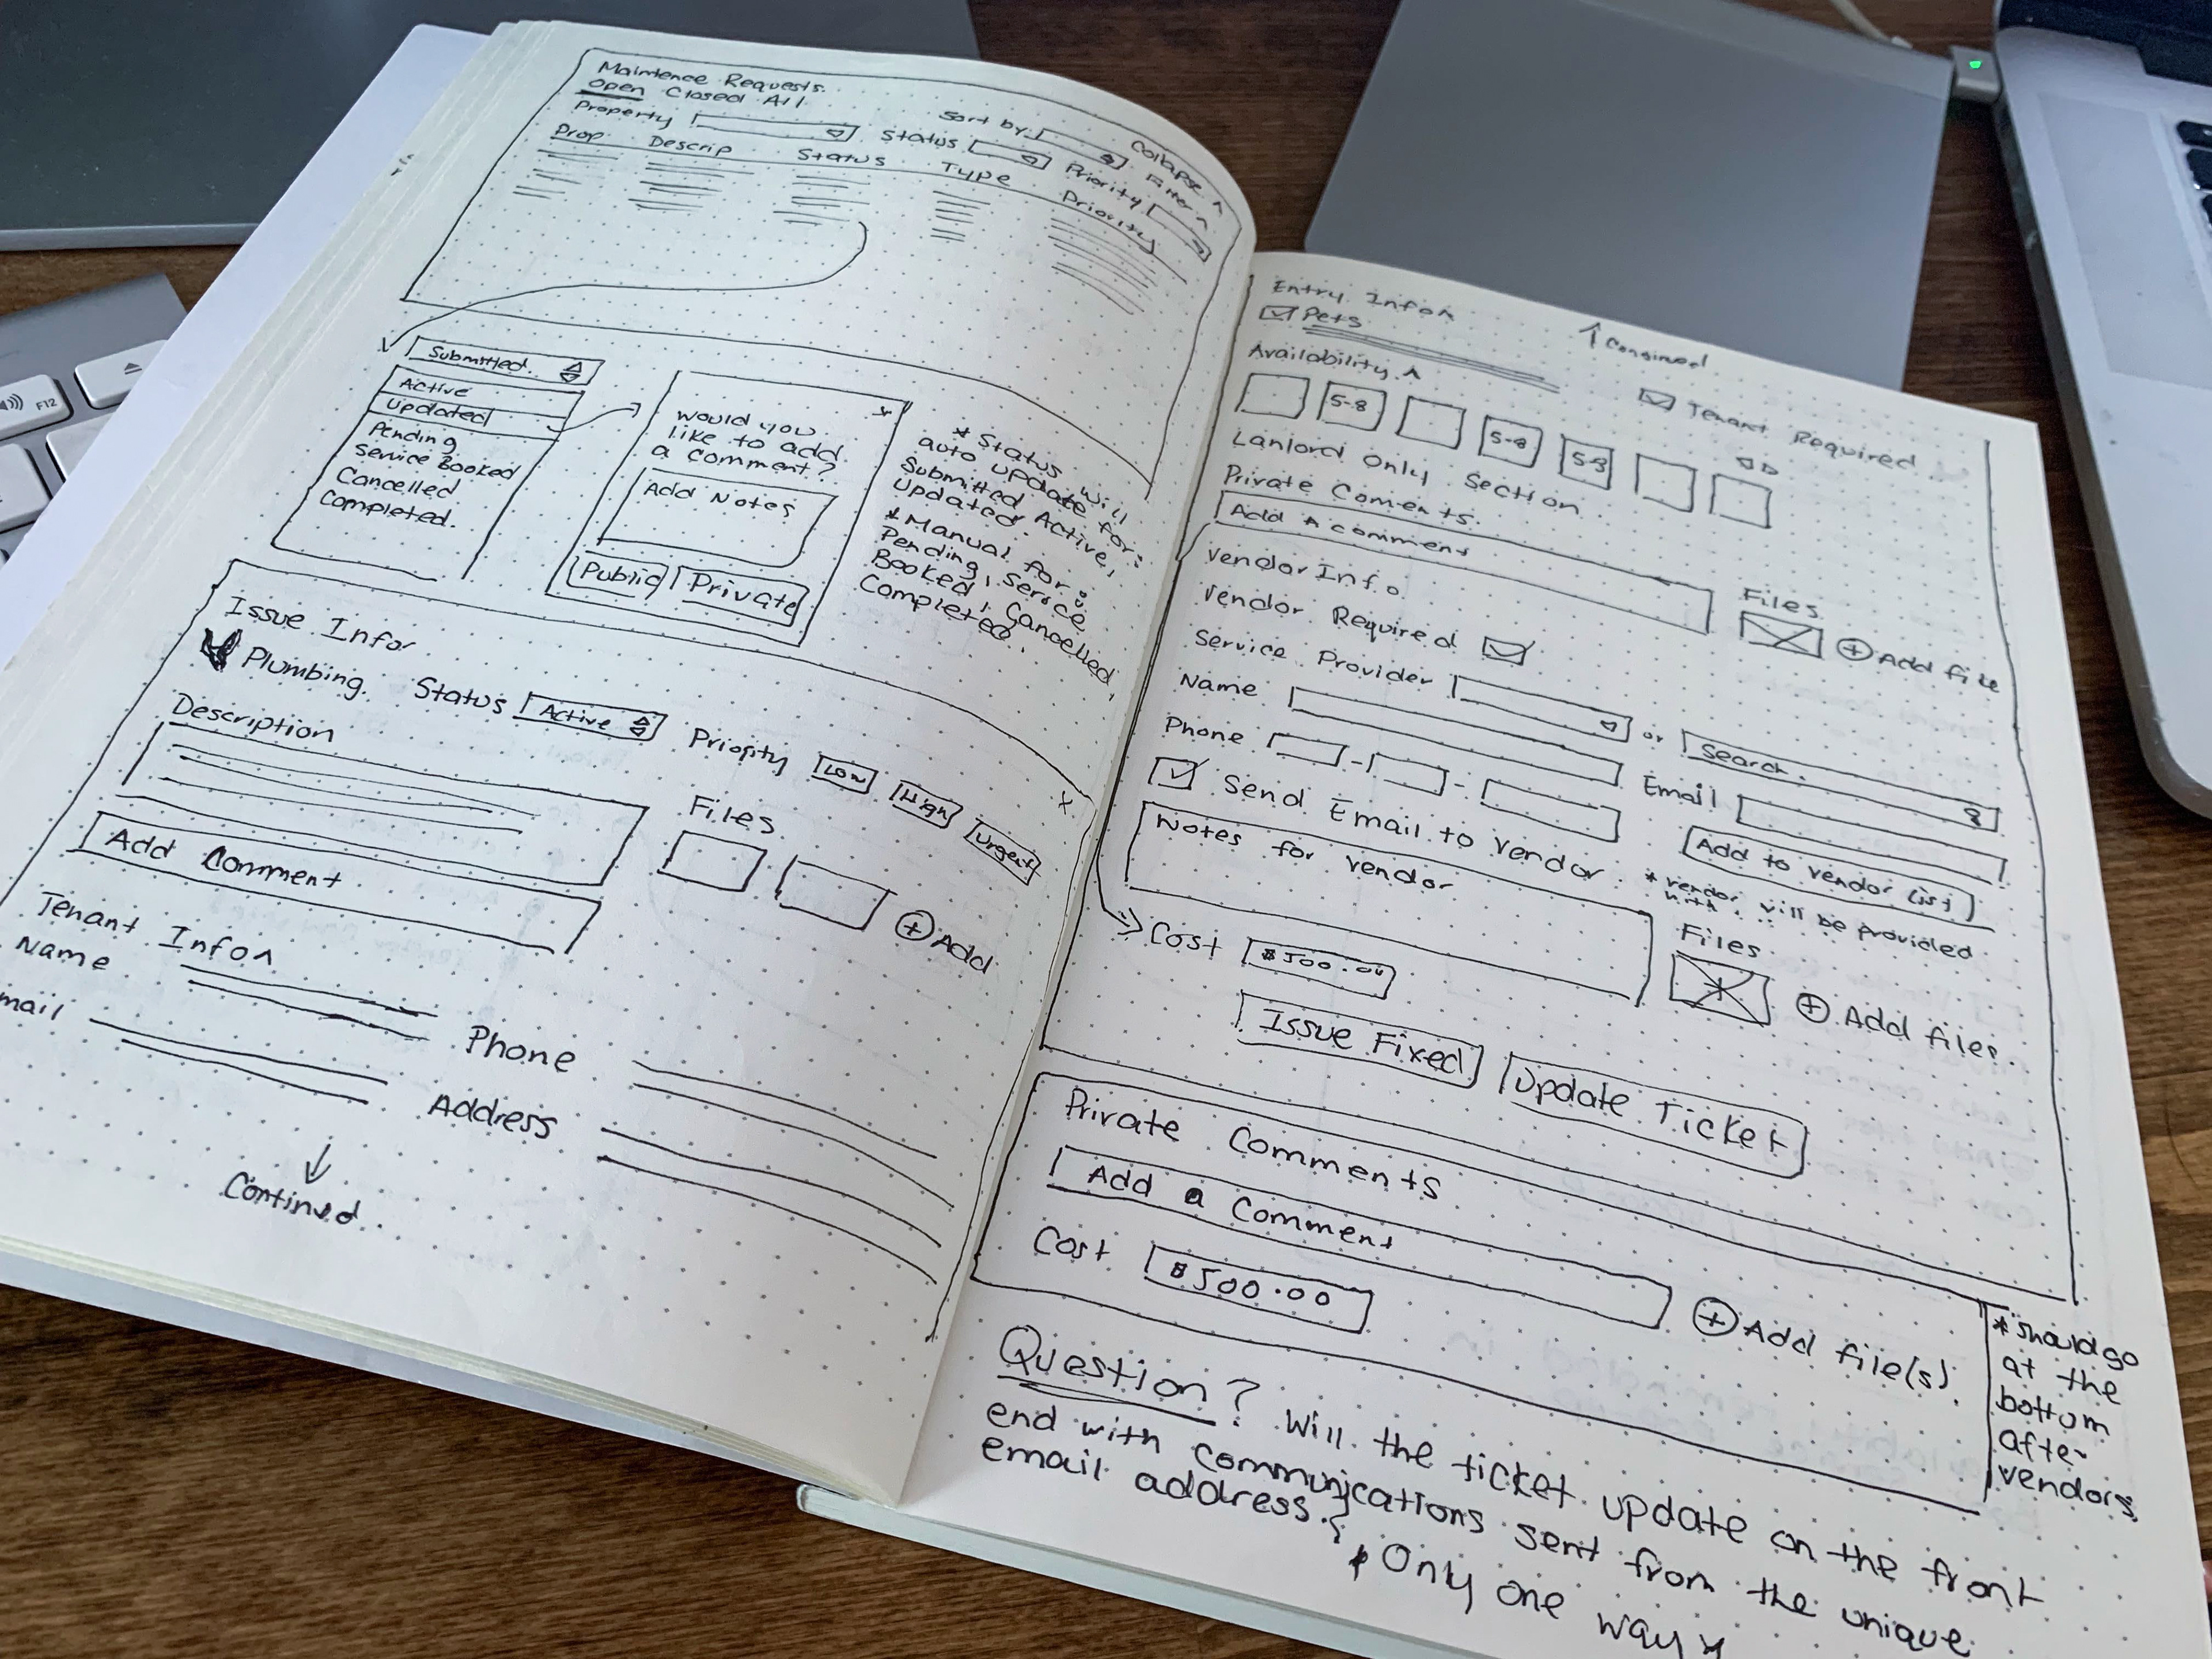 Maintence Requests.
Open Closed All
Sort by
Collapse ^
Filter ^
Property
Status
Priority
Prop
Descrip
Status
Type
Priority
Submitted
Active
Updated
Pending
Service Booked
Cancelled
Completed.
x
Would you
like to add
a comment?
Add Notes
Public
Private
* Status will
auto update for:
Submitted Active,
Updated.
* Manual for:
Pending, Service
Booked, Cancelled,
Completed.
Issue Info^
Plumbing.
Status
Active
Priority
Low
High
Urgent
x
Description
Files
Add
Add Comment
Tenant Info ^
Name
Phone
mail
Address
↓
Contined.
Entry Info^
↑ Contined
Pets
Tenant Required
Availability ^
5-8
5-8
5-8
Lanlord Only Section
Private Coments.
Add A comment
Files
+ Add file
Vendor Info
Vendor Required
Service Provider
or
Search.
Name
Email
Phone
-
-
Add to vendor list
Send Email to vendor.
* vendor will be provided
with...
Notes for vendor
Files
+ Add files.
Cost
$500.00
Issue Fixed
Update Ticket
Private Comments
Add a Comment
+ Add file(s)
Cost
$500.00
* Should go
at the
bottom
after
vendors
Question? Will the ticket update on the front
end with communications sent from the unique
email address?
* Only one way *
F12